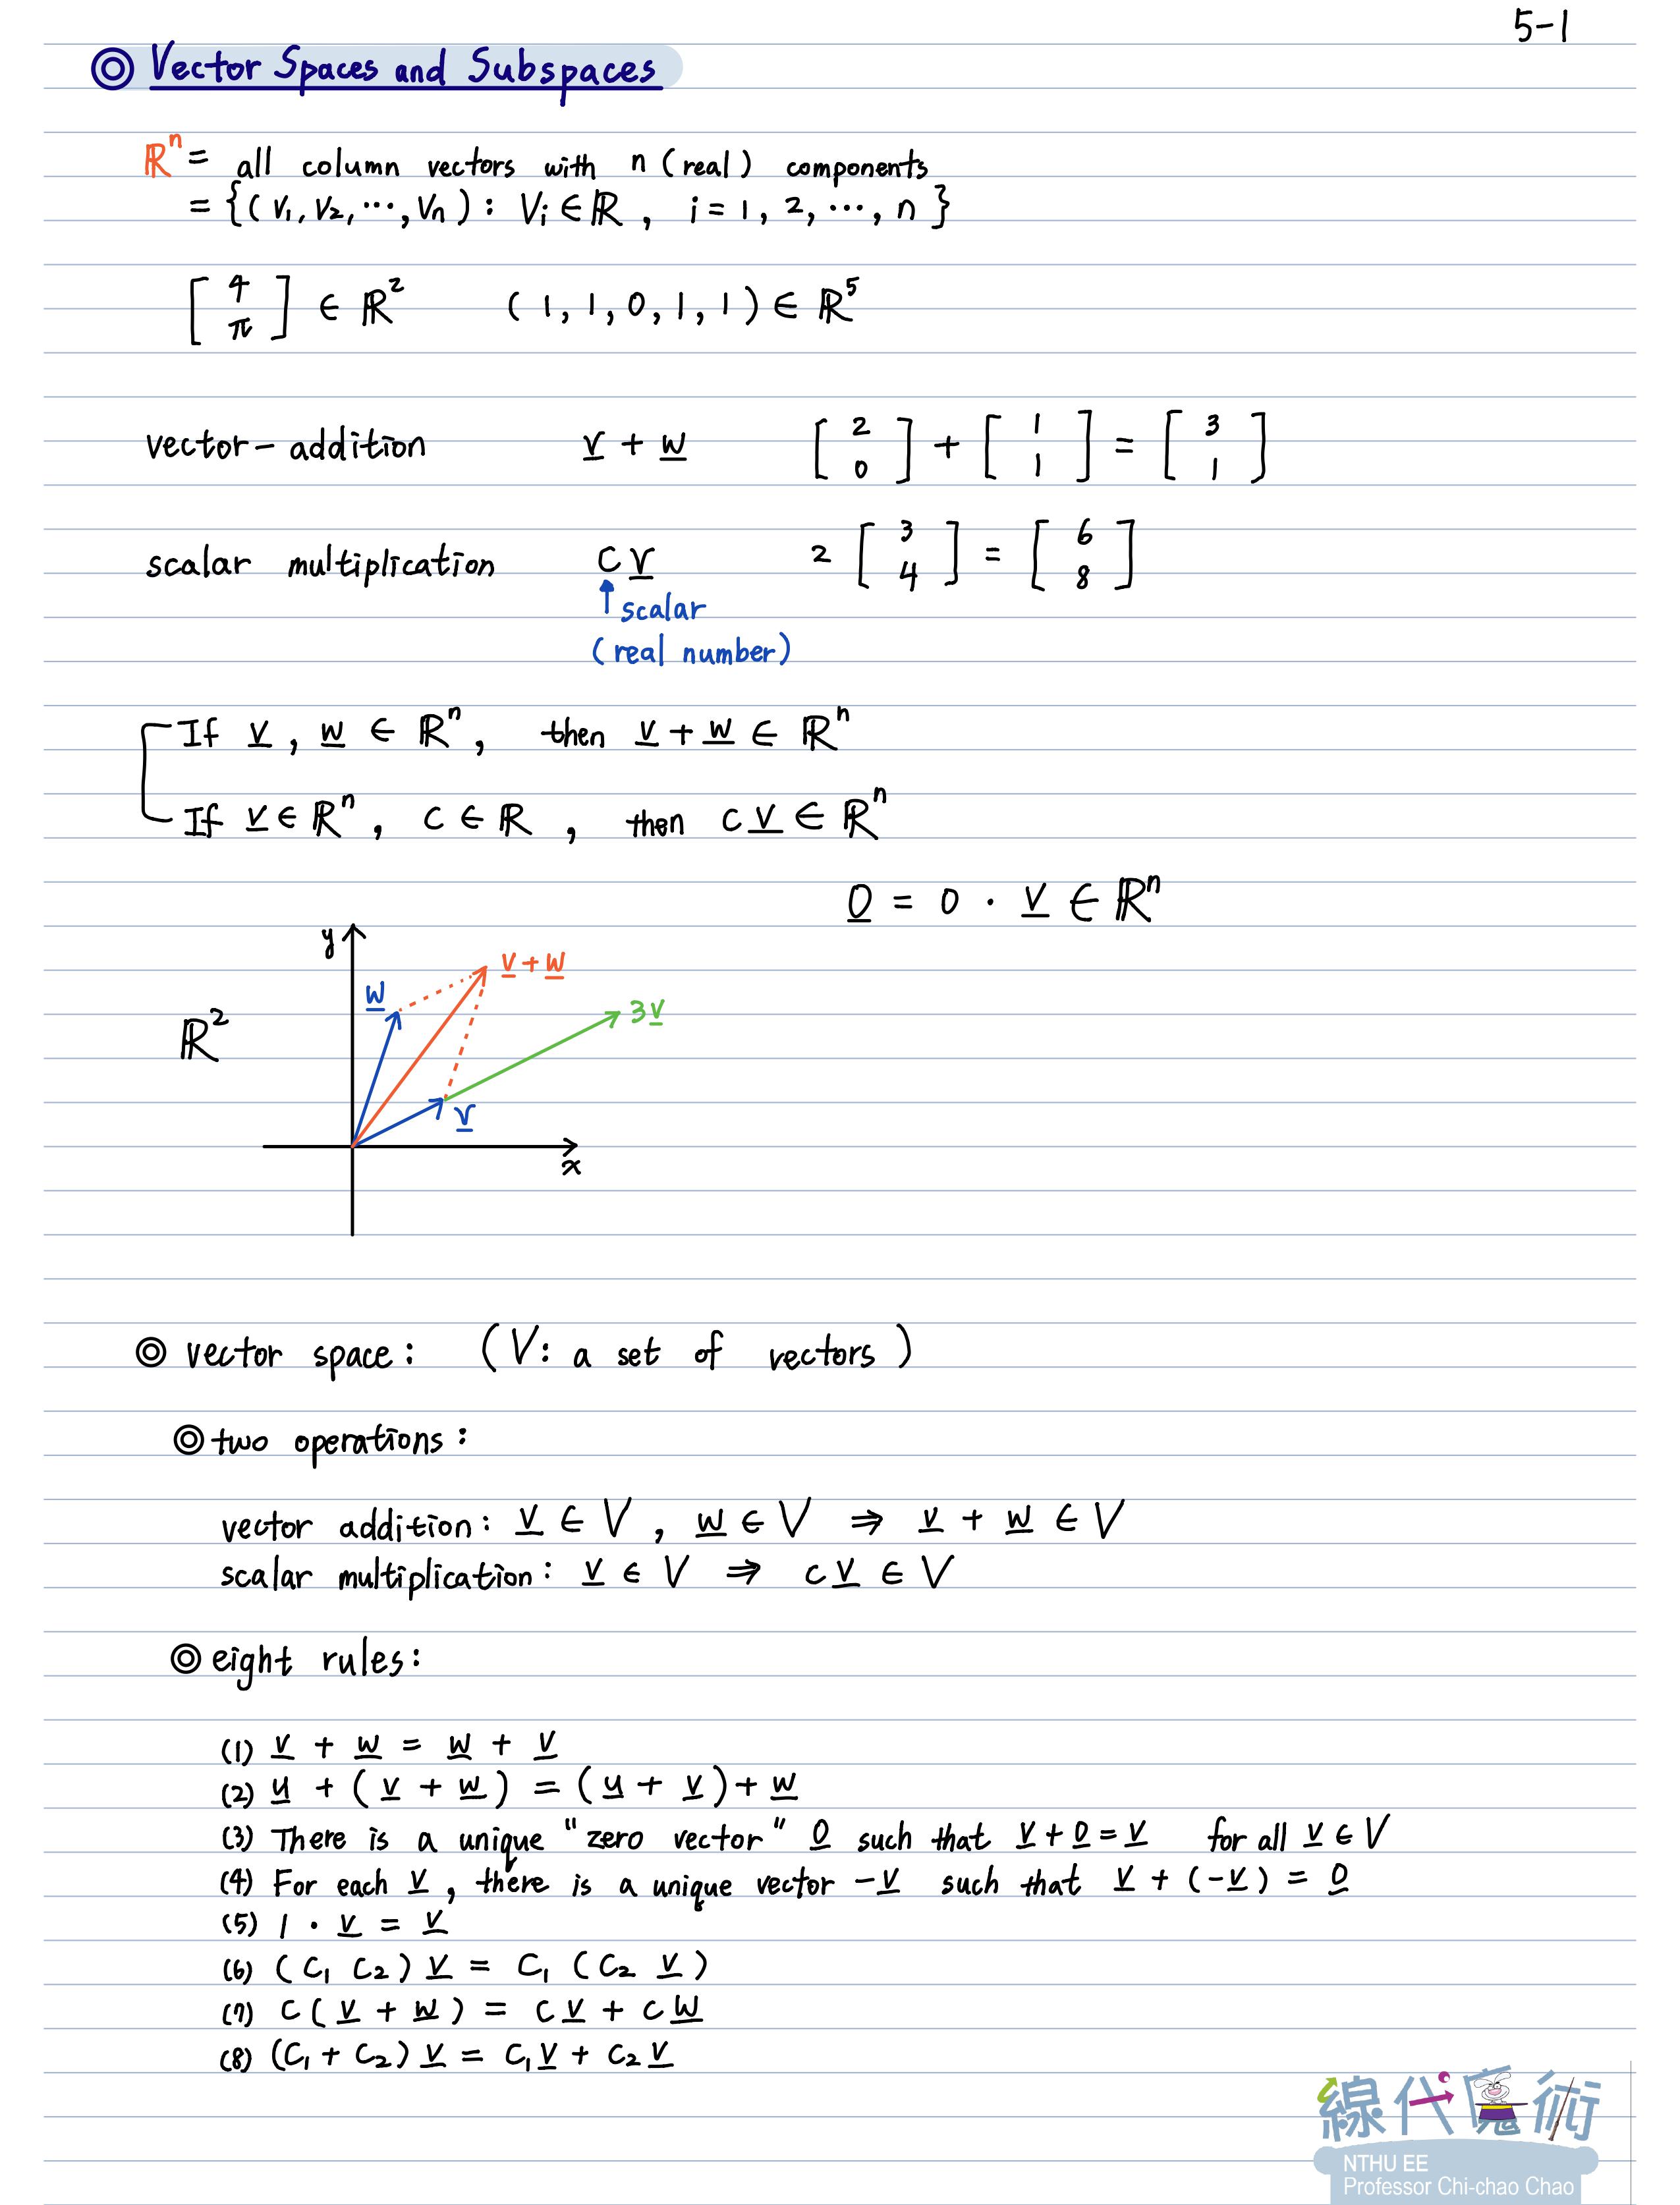 5-1
◎ Vector Spaces and Subspaces
ℝⁿ = all column vectors with n (real) components
= {(v₁, v₂, ⋯, vₙ) : vᵢ ∈ ℝ , i = 1, 2, ⋯, n }
[ 4 π ] ∈ ℝ² ( 1, 1, 0, 1, 1 ) ∈ ℝ⁵
vector-addition v̲ + w̲ [ 2 0 ] + [ 1 1 ] = [ 3 1 ]
scalar multiplication c v̲ 2 [ 3 4 ] = [ 6 8 ]
↑ scalar
(real number)
If v̲ , w̲ ∈ ℝⁿ , then v̲ + w̲ ∈ ℝⁿ
If v̲ ∈ ℝⁿ , c ∈ ℝ , then c v̲ ∈ ℝⁿ
0̲ = 0 · v̲ ∈ ℝⁿ
y
v̲ + w̲
w̲
3v̲
ℝ²
v̲
x
◎ vector space : (V: a set of vectors )
◎ two operations :
vector addition : v̲ ∈ V , w̲ ∈ V ⇒ v̲ + w̲ ∈ V
scalar multiplication : v̲ ∈ V ⇒ c v̲ ∈ V
◎ eight rules :
(1) v̲ + w̲ = w̲ + v̲
(2) u̲ + ( v̲ + w̲ ) = ( u̲ + v̲ ) + w̲
(3) There is a unique "zero vector" 0̲ such that v̲ + 0̲ = v̲ for all v̲ ∈ V
(4) For each v̲ , there is a unique vector -v̲ such that v̲ + (-v̲) = 0̲
(5) 1 · v̲ = v̲
(6) (c₁ c₂) v̲ = c₁ (c₂ v̲)
(7) c ( v̲ + w̲ ) = c v̲ + c w̲
(8) (c₁ + c₂) v̲ = c₁ v̲ + c₂ v̲
線代魔術
NTHU EE
Professor Chi-chao Chao